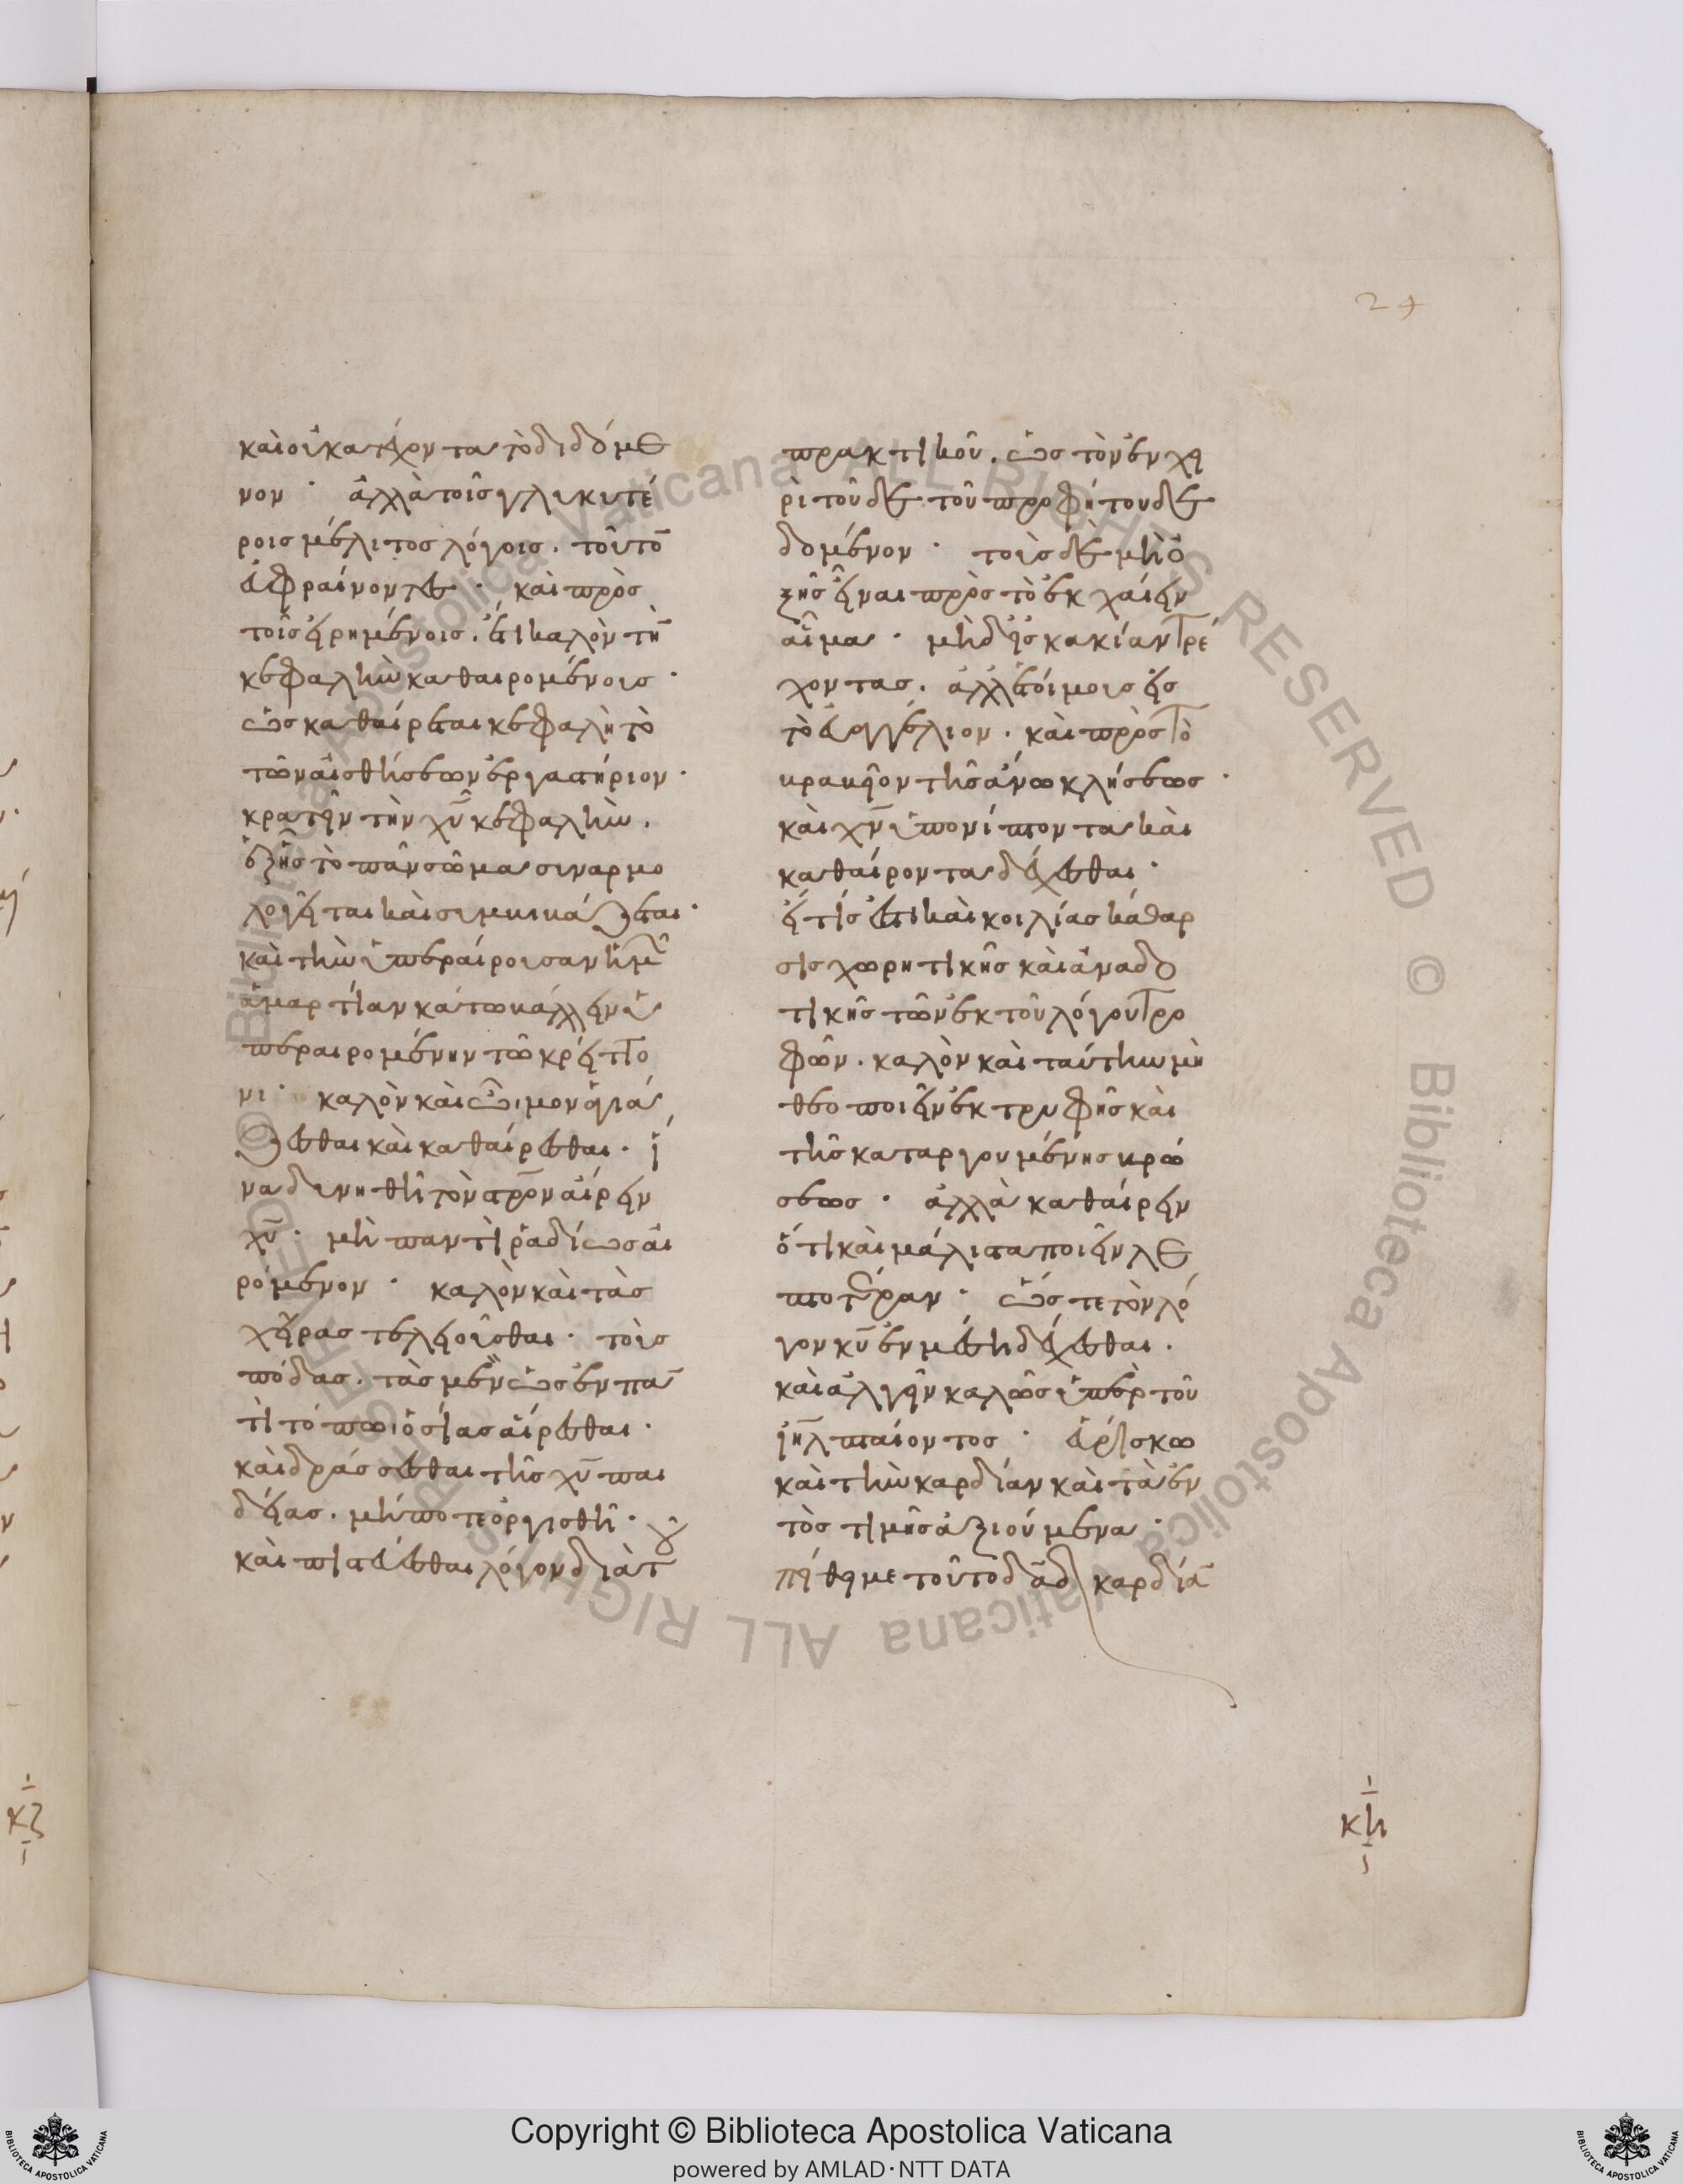 24
καὶ οὐ κατέχοντα τὸ διδόμε
νον · ἀλλὰ τοῖς γλυκυτέ
ροις μέλιτος λόγοις . τοῦτο̅
εὐφραίνοντα · καὶ πρὸς
τοῖς εἰρημένοις . ἔτι καλὸν τὴ̅
κεφαλὴν καθαιρομένοις ·
ὡς καθαίρεται κεφαλὴ τὸ
τῶν αἰσθήσεων ἐργαστήριον ·
κρατεῖν τὴν χυ̅ κεφαλὴν .
ἐξ ἧς τὸ πᾶν σῶμα συναρμο
λογεῖται καὶ συμβιβάζεται ·
καὶ τὴν ὑπεραίρουσαν ἡμῶ̅
ἁμαρτίαν κάτω βάλλειν ὑ
περαιρομένην τῶ κρείττο
νι · καλὸν καὶ ὦμον ἁγιά
ζεσθαι καὶ καθαίρεσθαι · ἵ
να δυνηθῆ τὸν στρον αἴρειν
χυ̅ · μὴ παντὶ ῥαδίως αἰ
ρόμενον · καλὸν καὶ τὰς
χεῖρας τελειοῦσθαι · τοὺς
πόδας . τὰς μὲν ὡς ἐν πα̅
τὶ τόπωι ὁσίας αἴρεσθαι ·
καὶ δράσσεσθαι τῆς χυ̅ παι
δείας . μήποτε ὀργισθῆ ·
καὶ πιστεύεσθαι λόγον διὰ τοῦ
πρακτικοῦ . ὡς τὸν ἐν χει
ρὶ τοῦδε τοῦ προφήτου δε
δομένον · τοὺς δὲ μὴ ὀ
ξεῖς εἶναι πρὸς τὸ ἐκχέειν
αἷμα · μὴ δ' εἰς κακίαν τρέ
χοντας . ἀλλ' ἑτοίμους εἰς
τὸ εὐαγγέλιον . καὶ πρὸς τὸ
βραβεῖον τῆς ἄνω κλήσεως ·
καὶ χν̅ ὑπονίπτοντα καὶ
καθαίροντα δέχεσθαι ·
εἴ τίς ἐστι καὶ κοιλίας κάθαρ
σις χωρητικῆς καὶ ἀναδο
τικῆς τῶν ἐκ τοῦ λόγου τρο
φῶν . καλὸν καὶ ταύτην μὴ
θεοποιεῖν ἐκ τρυφῆς καὶ
τῆς καταργουμένης βρώ
σεως · ἀλλὰ καθαίρειν
ὅτι καὶ μάλιστα ποιεῖν λε
πτοτέραν · ὥστε τὸν λό
γον κυ̅ ἐν μέσηι δέχεσθαι .
καὶ ἀλγεῖν καλῶς ὑπὲρ τοῦ
ιηλ̅ πταίοντος · εὑρίσκω
καὶ τὴν καρδίαν καὶ τὰ ἐν
τὸς τιμῆς ἀξιούμενα ·
πείθει με τοῦτο δᾱδ καρδία̅
κζ
κη
Copyright © Biblioteca Apostolica Vaticana
powered by AMLAD·NTT DATA